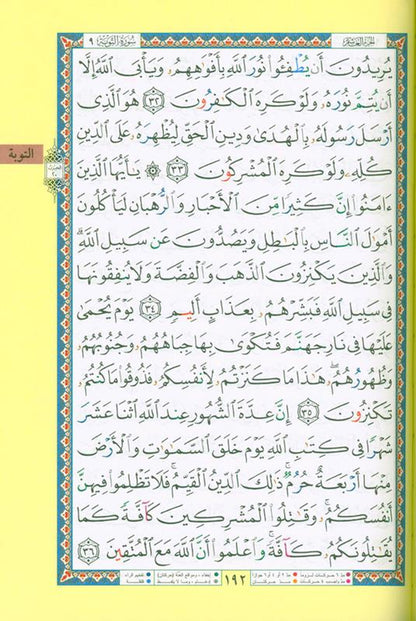 الجزء العاشر
سورة التوبة ٩
يُرِيدُونَ أَن يُطْفِـُٔوا۟ نُورَ ٱللَّهِ بِأَفْوَٰهِهِمْ وَيَأْبَى ٱللَّهُ إِلَّآ
أَن يُتِمَّ نُورَهُۥ وَلَوْ كَرِهَ ٱلْكَٰفِرُونَ ٣٢ هُوَ ٱلَّذِىٓ
أَرْسَلَ رَسُولَهُۥ بِٱلْهُدَىٰ وَدِينِ ٱلْحَقِّ لِيُظْهِرَهُۥ عَلَى ٱلدِّينِ
كُلِّهِۦ وَلَوْ كَرِهَ ٱلْمُشْرِكُونَ ٣٣ ۞ يَٰٓأَيُّهَا ٱلَّذِينَ
ءَامَنُوٓا۟ إِنَّ كَثِيرًا مِّنَ ٱلْأَحْبَارِ وَٱلرُّهْبَانِ لَيَأْكُلُونَ
أَمْوَٰلَ ٱلنَّاسِ بِٱلْبَٰطِلِ وَيَصُدُّونَ عَن سَبِيلِ ٱللَّهِ ۗ
وَٱلَّذِينَ يَكْنِزُونَ ٱلذَّهَبَ وَٱلْفِضَّةَ وَلَا يُنفِقُونَهَا
فِى سَبِيلِ ٱللَّهِ فَبَشِّرْهُم بِعَذَابٍ أَلِيمٍ ٣٤ يَوْمَ يُحْمَىٰ
عَلَيْهَا فِى نَارِ جَهَنَّمَ فَتُكْوَىٰ بِهَا جِبَاهُهُمْ وَجُنُوبُهُمْ
وَظُهُورُهُمْ ۖ هَٰذَا مَا كَنَزْتُمْ لِأَنفُسِكُمْ فَذُوقُوا۟ مَا كُنتُمْ
تَكْنِزُونَ ٣٥ إِنَّ عِدَّةَ ٱلشُّهُورِ عِندَ ٱللَّهِ ٱثْنَا عَشَرَ
شَهْرًا فِى كِتَٰبِ ٱللَّهِ يَوْمَ خَلَقَ ٱلسَّمَٰوَٰتِ وَٱلْأَرْضَ
مِنْهَآ أَرْبَعَةٌ حُرُمٌ ۚ ذَٰلِكَ ٱلدِّينُ ٱلْقَيِّمُ ۚ فَلَا تَظْلِمُوا۟ فِيهِنَّ
أَنفُسَكُمْ ۚ وَقَٰتِلُوا۟ ٱلْمُشْرِكِينَ كَآفَّةً كَمَا
يُقَٰتِلُونَكُمْ كَآفَّةً ۚ وَٱعْلَمُوٓا۟ أَنَّ ٱللَّهَ مَعَ ٱلْمُتَّقِينَ ٣٦
التوبة
١٩٢